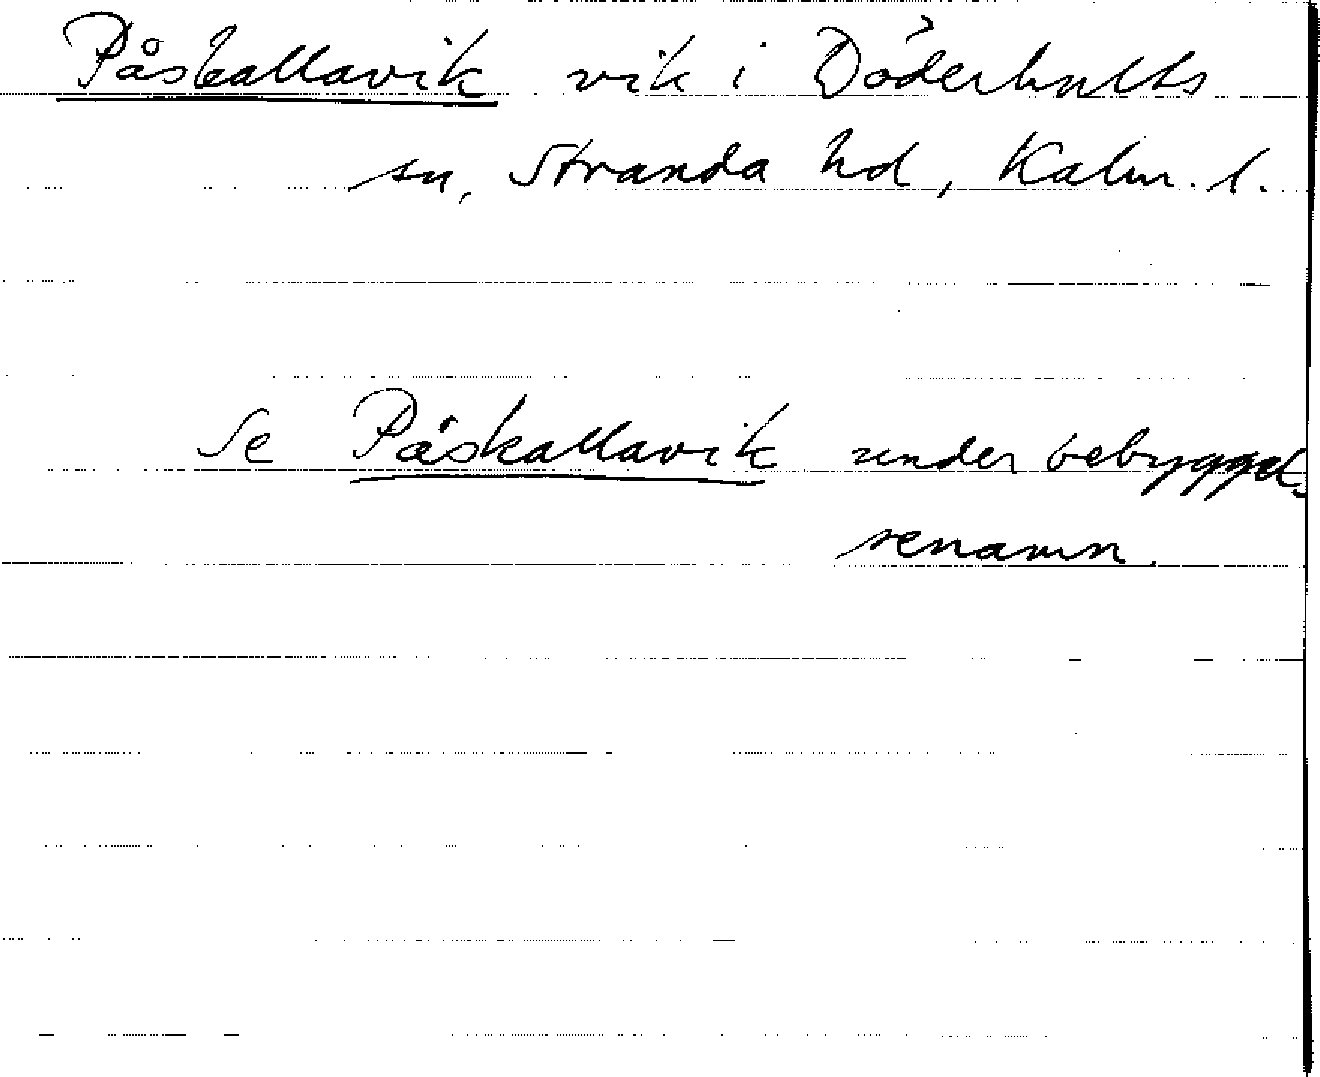 Påskallavik vik i Döderhults
sn, Stranda hd, Kalm. l.
Se Påskallavik under bebyggel-
senamn.